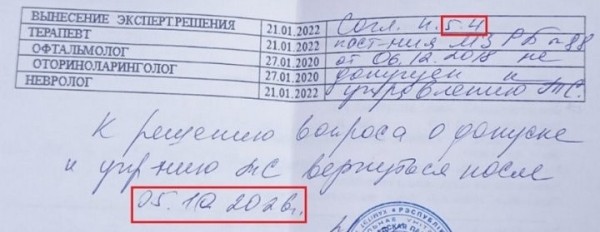 ВЫНЕСЕНИЕ ЭКСПЕРТ.РЕШЕНИЯ 21.01.2022 Согл. п. 5.4
ТЕРАПЕВТ 21.01.2022 пост-ния МЗ РБ №88
ОФТАЛЬМОЛОГ 27.01.2020 от 06.12.2018 не
ОТОРИНОЛАРИНГОЛОГ 27.01.2020 допущен к
НЕВРОЛОГ 21.01.2022 управлению ТС.
К решению вопроса о допуске
к упр-нию ТС вернуться после
05.10.202 г.